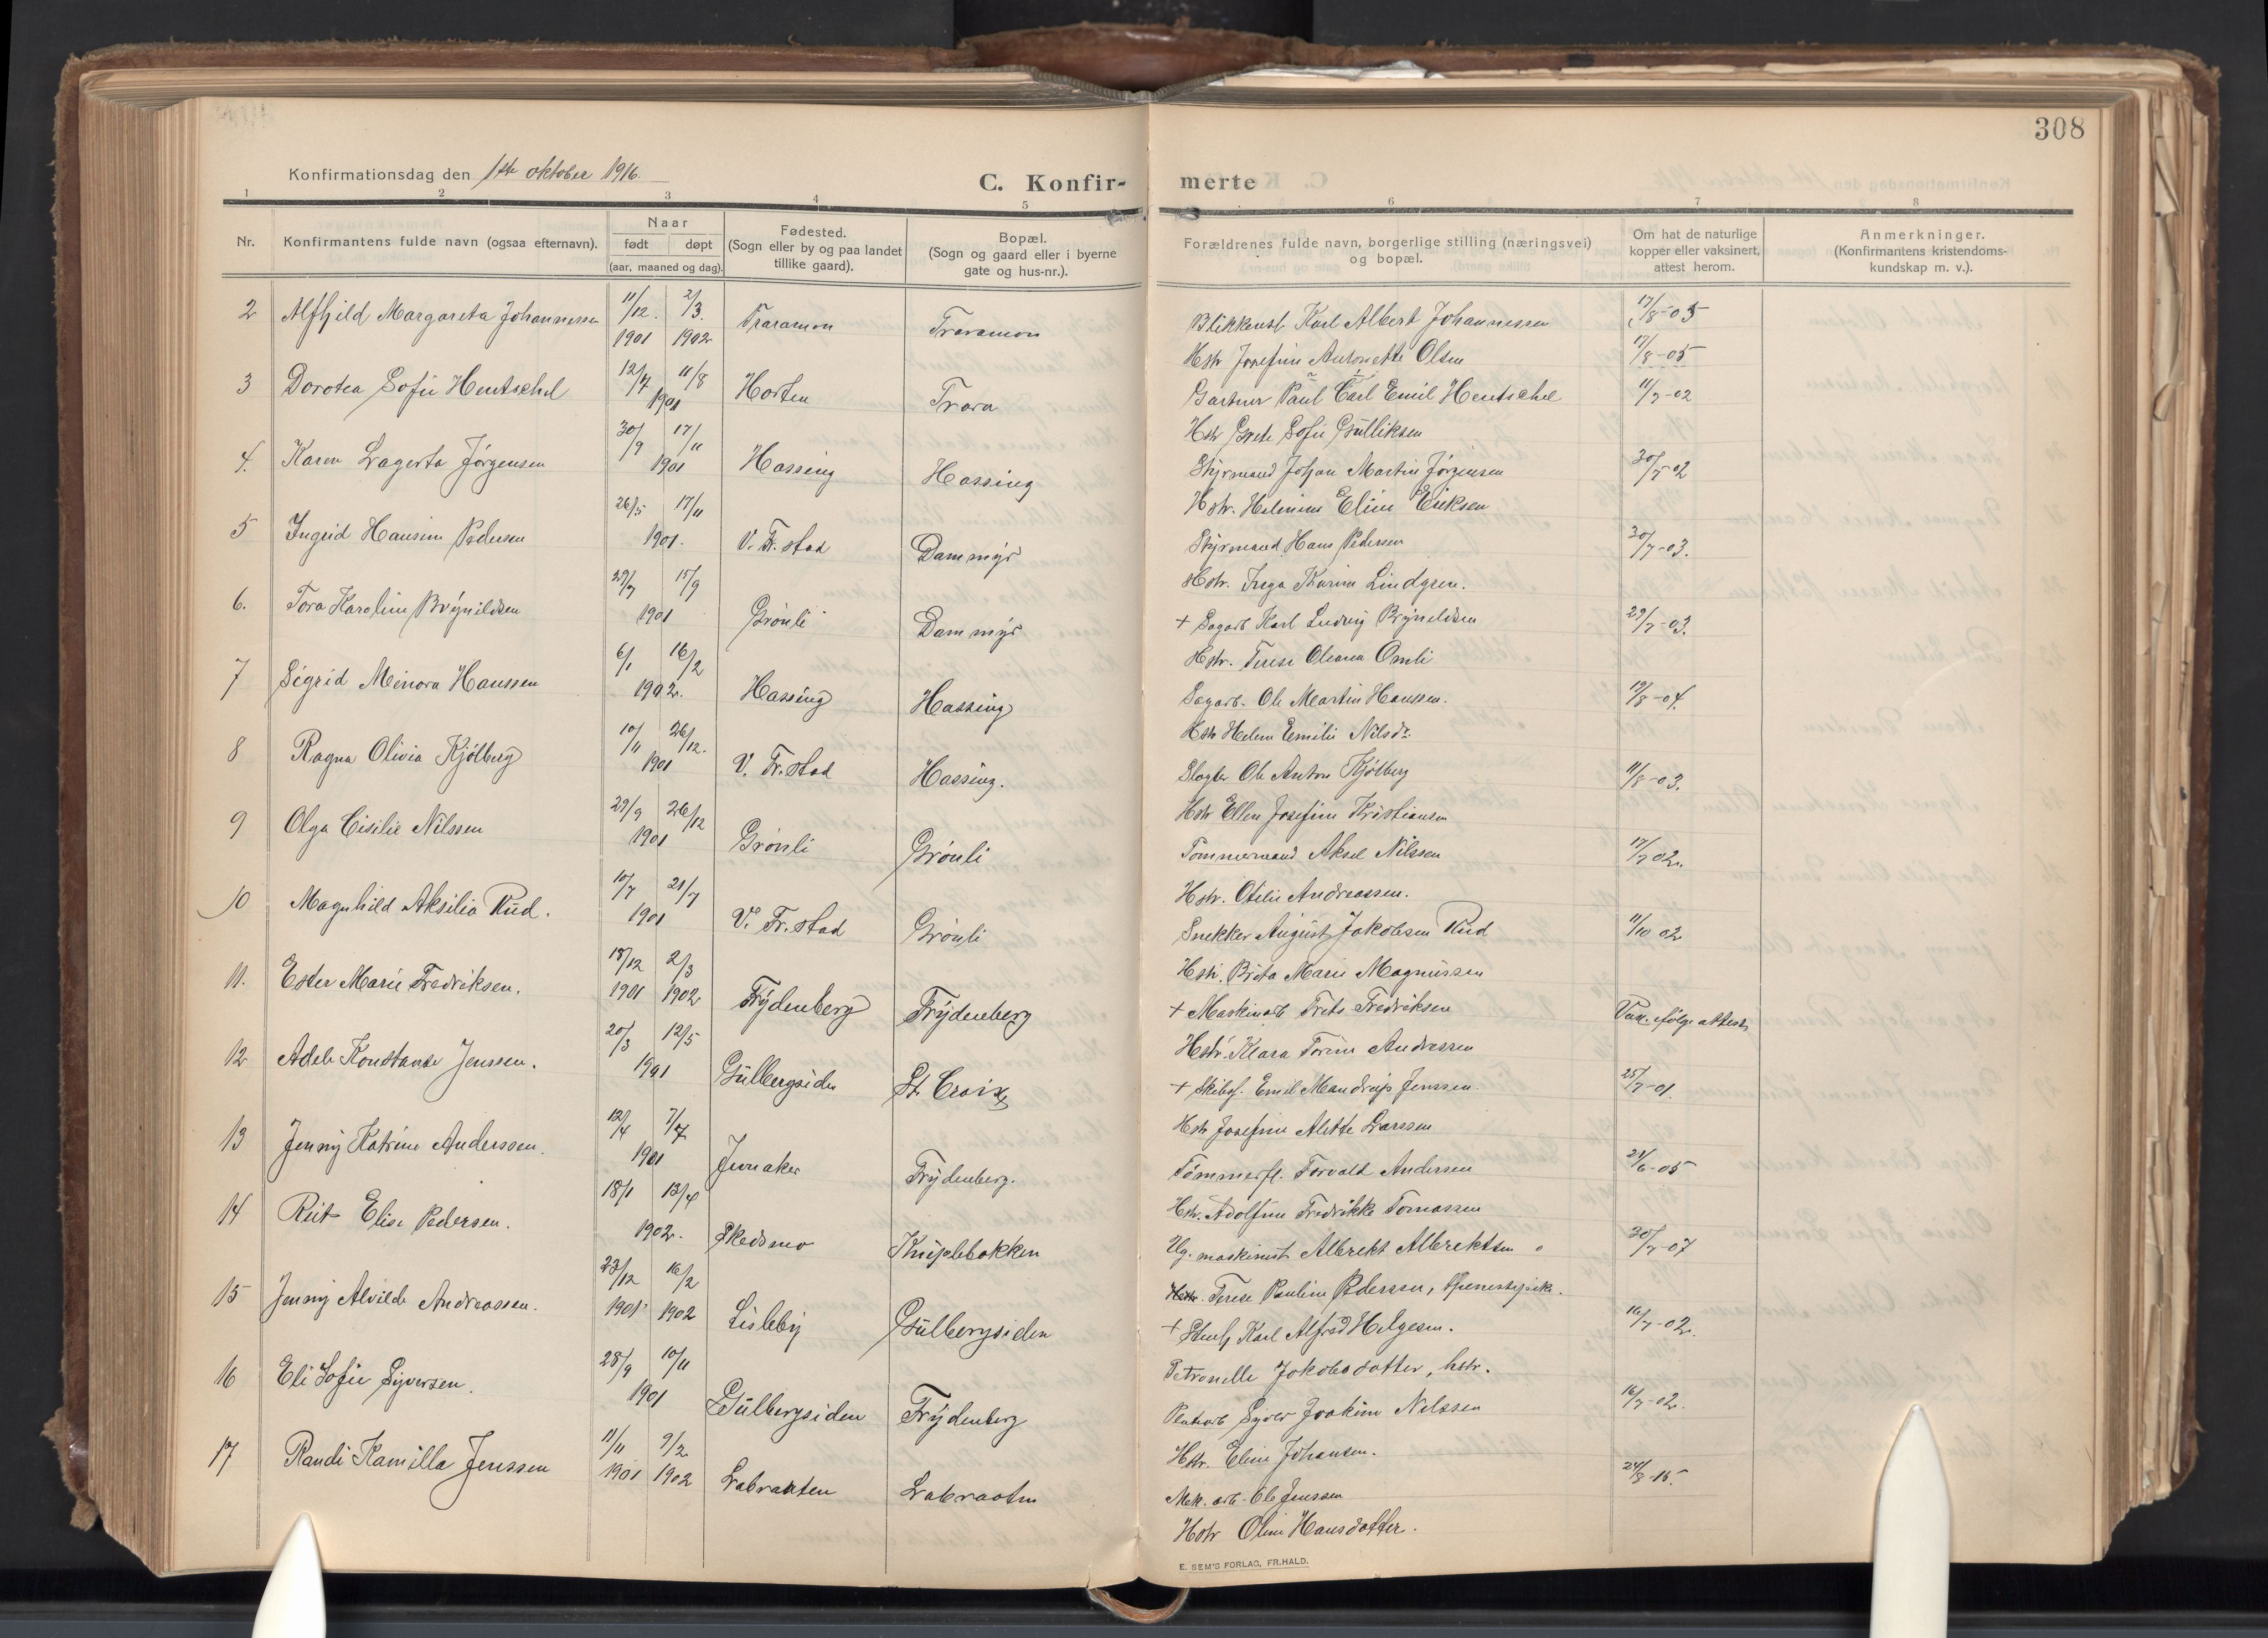 308
Konfirmationsdag den 1ste oktober 1916.
C. Konfir- merte
1 2 3 4 5 6 7 8
Nr. Konfirmantens fulde navn (ogsaa efternavn). Naar født døpt (aar, maaned og dag). Fødested. (Sogn eller by og paa landet tillike gaard). Bopæl. (Sogn og gaard eller i byerne gate og hus-nr.). Forældrenes fulde navn, borgerlige stilling (næringsvei) og bopæl. Om hat de naturlige kopper eller vaksinert, attest herom. Anmerkninger. (Konfirmantens kristendoms- kundskap m. v.).
2 Alfhild Margareta Johannessen 11/12. 1901 2/3. 1902 Traramon Traramon Blikkensl. Karl Albert Johannessen 17/8-05
Hstr Josefine Antonette Olsen 17/8-05
3 Dorotea Sofie Hentschel 12/7 11/8 1901 Horten Trara Gartner Paul Carl Emil Hentschel 11/7-02
Hstr Grete Sofie Gulliksen
4. Karen Lagerta Jørgensen 30/9 17/11 1901 Hassing Hassing Styrmand Johan Martin Jørgensen 30/7-02
Hstr. Helmine Eline Eriksen
5 Ingrid Hansine Pedersen 26/5 17/11 1901. V. Fr. stad Dammyr Styrmand Hans Pedersen 30/7-03.
Hstr. Inga Karine Lindgren.
6. Tora Karoline Brynildsen 29/7 15/9 1901 Grønli Dammyr + Sagarb Karl Ludvig Brynildsen 29/7-03.
Hstr. Terese Oleana Omli
7 Sigrid Meinora Hanssen 6/1 16/2 1902. Hassing Hassing Sagarb. Ole Martin Hanssen. 19/8-04.
Hstr Helene Emilie Nilsdr.
8 Ragna Olivia Kjølberg 10/11 26/12. 1901 V. Fr. stad Hassing. Slagter Ole Anton Kjølberg 11/8-03.
Hstr Ellen Josefine Kristiansen
9 Olga Cisilie Nilssen 29/9 26/12 1901 Grønli Grønli Tømmermand Aksel Nilssen 17/7 02.
Hstr. Otilie Andreassen.
10 Magnhild Aksilia Rud. 10/7 21/7 1901 V. Fr. stad Grønli Snekker August Jakobsen Rud 11/10 02
Hstr. Brita Marie Magnussen
11. Ester Marie Fredriksen. 18/12 1901 2/3 1902 Frydenberg Frydenberg + Maskinarb Frits Fredriksen Vax. ifølge attest
Hstr. Klara Torine Andressen
12 Adele Konstanse Jenssen. 20/3 12/5 1901 Gulbergsiden St. Croix + Skibsf. Emil Mandrup Jenssen. 25/7-01.
Hstr Josefine Alette Larssen
13 Jenny Katrine Anderssen. 12/4 7/7 1901 Jevnaker Frydenberg. Tømmerfl. Torvald Andersen 21/6-05
Hstr. Adolfine Fredrikke Tomassen
14 Rut Elise Pedersen. 18/1 13/4 1902. Skedsmo Kniplebakken Ug. maskinist Albrekt Albrektsen o 30/7-07
Hstr. Terese Pauline Pedersen, tjenestepike.
15 Jenny Alvilde Andreassen. 23/12 1901 16/2 1902 Lisleby Gulbergsiden + Stenh. Karl Alfred Helgesen. 16/7-02.
Petronelle Jakobsdatter, hstr.
16 Eli Sofie Syversen. 28/9 10/11 1901 Gulbergsiden Frydenberg Plankarb Syver Joakim Nilssen 16/7-02.
Hstr. Eline Johansen.
17 Randi Kamilla Jenssen 11/11 1901 9/2 1902 Labraaten Labraaten Mek. arb. Ole Jenssen 24/8-15.
Hstr Oline Hansdatter.
E. SEM'S FORLAG, FR.HALD.